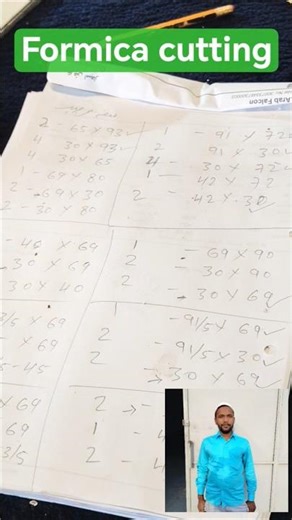 Formica cutting
Arab Falcon
2 - 65 x 93 ✓
4 30 x 93 ✓
4 30 x 65
1 - 69 x 80
2 - 69 x 30
2 - 30 x 80
1 - 91 x 72
2 91 x 30
4 - 30 x 72
1 - 42 x 72
2 - 42 x 30 ✓
- 46 x 69
- 30 x 69
30 x 40
1 - 69 x 90
2 - 30 x 90
2 - 30 x 69 ✓
3/5 x 69
- x 69
5 - 45
1 - 91/5 x 69 ✓
2 - 91/5 x 30 ✓
2 - 30 x 69 ✓
x 69
69
3/5
2 → -
1 - 4
2 - 4